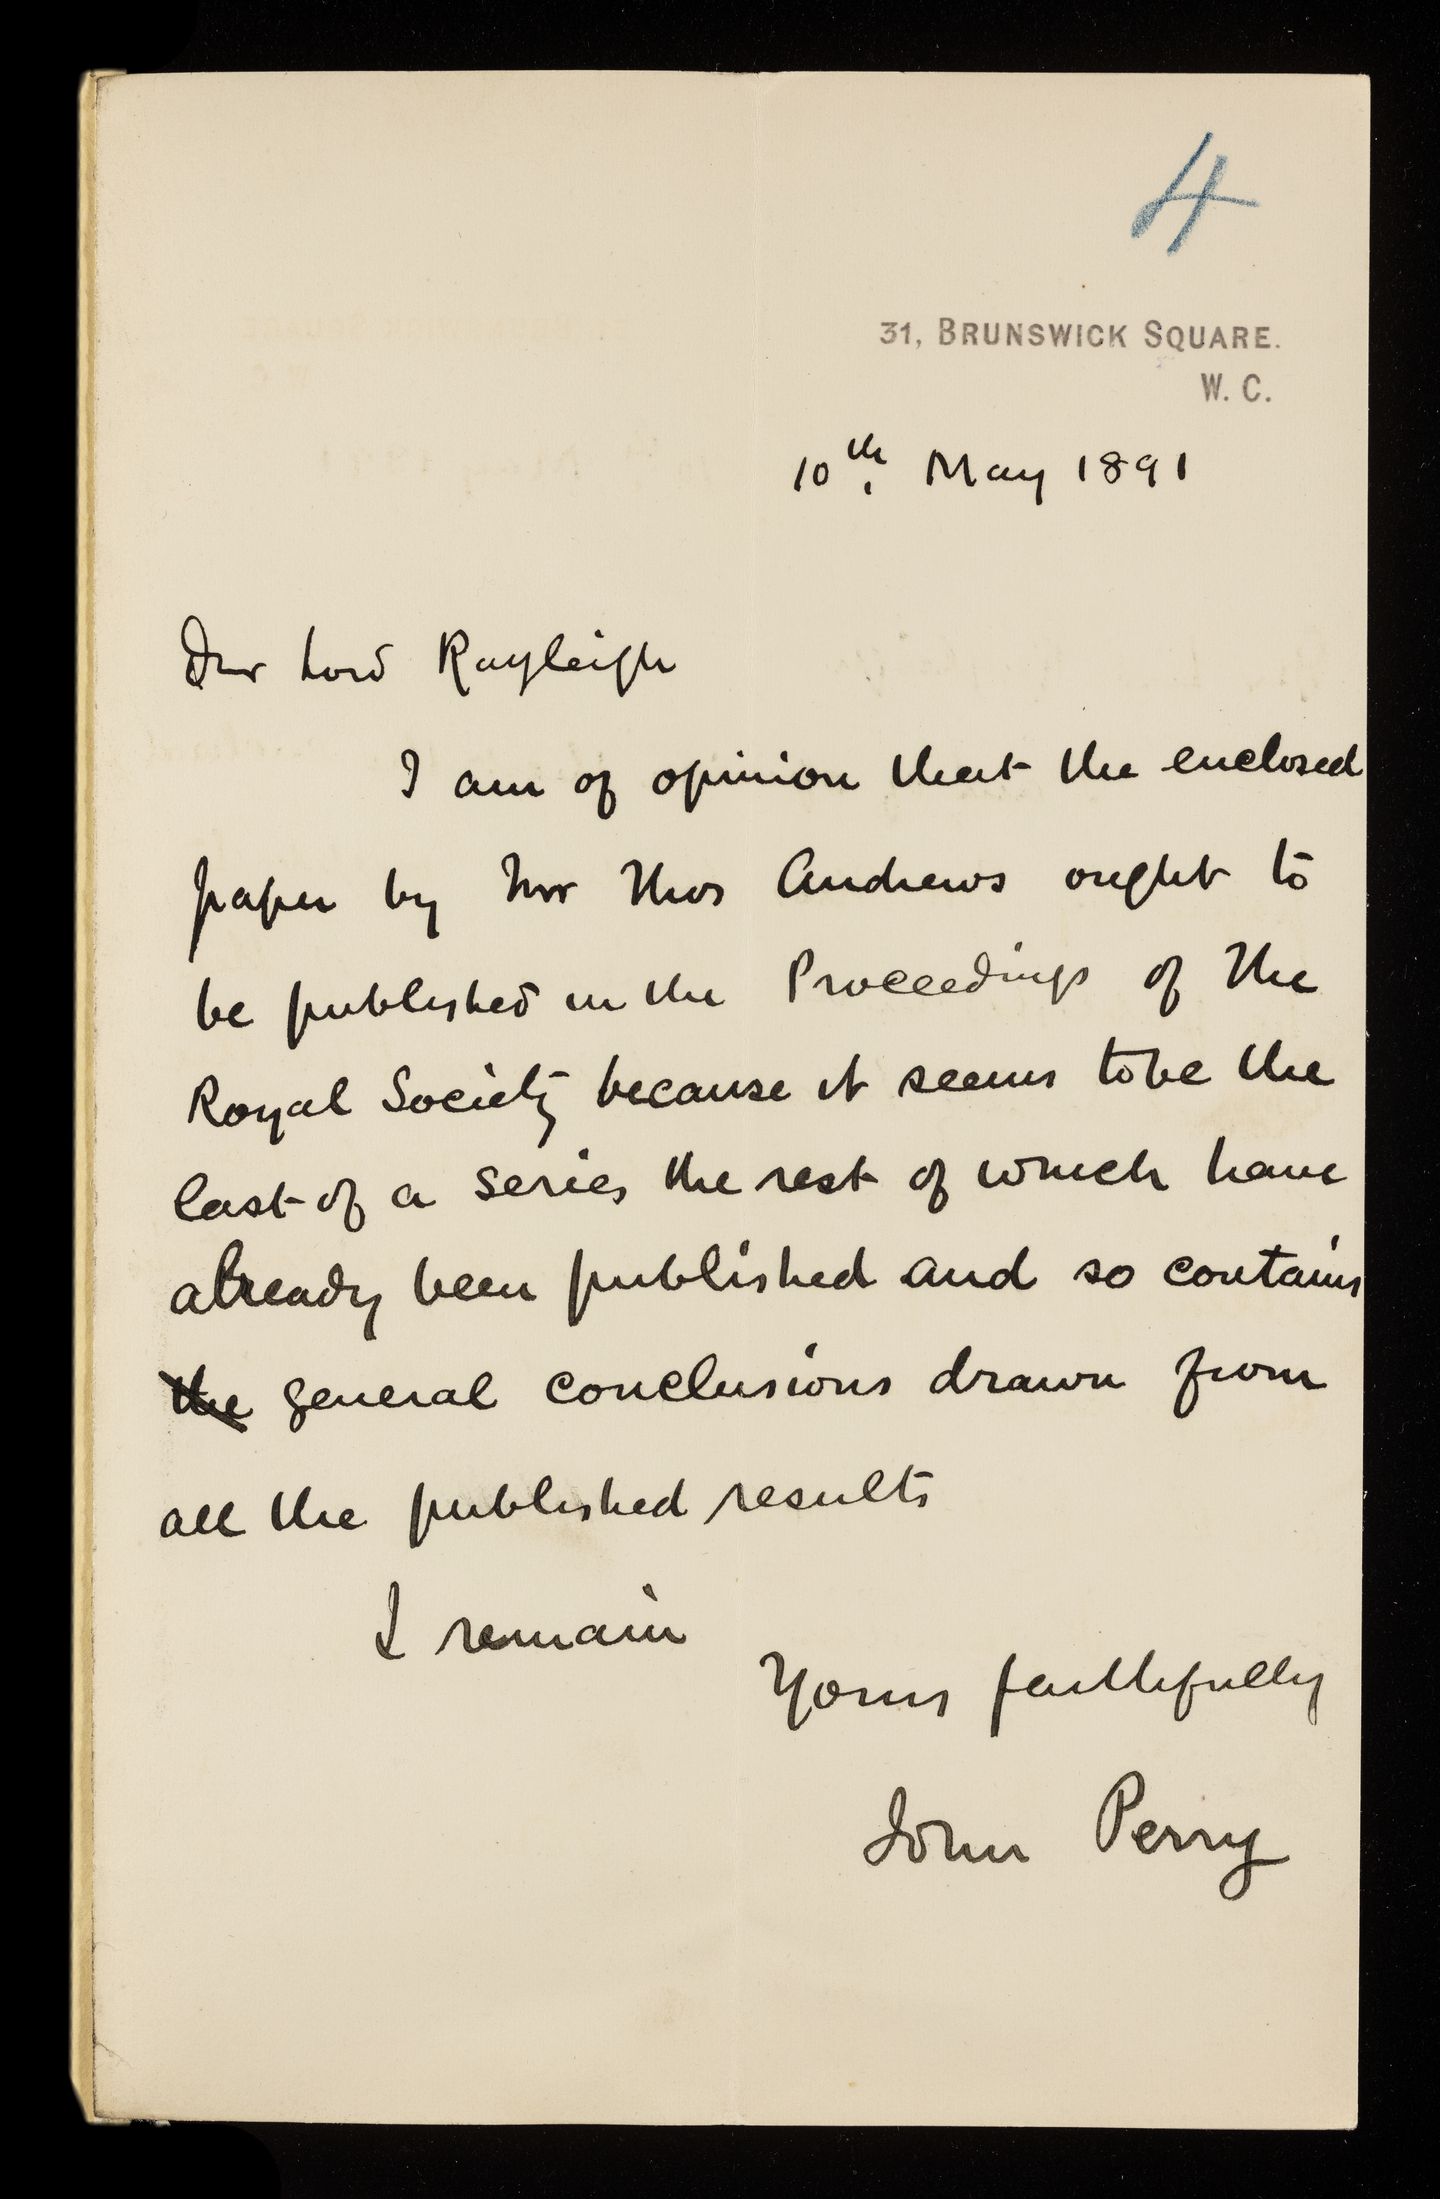 4
31, BRUNSWICK SQUARE.
W. C.
10th. May 1891
Dear Lord Rayleigh
I am of opinion that the enclosed
paper by Mr Thos Andrews ought to
be published in the Proceedings of the
Royal Society because it seems to be the
last of a series the rest of which have
already been published and so contains
the general conclusions drawn from
all the published results
I remain
Yours faithfully
John Perry